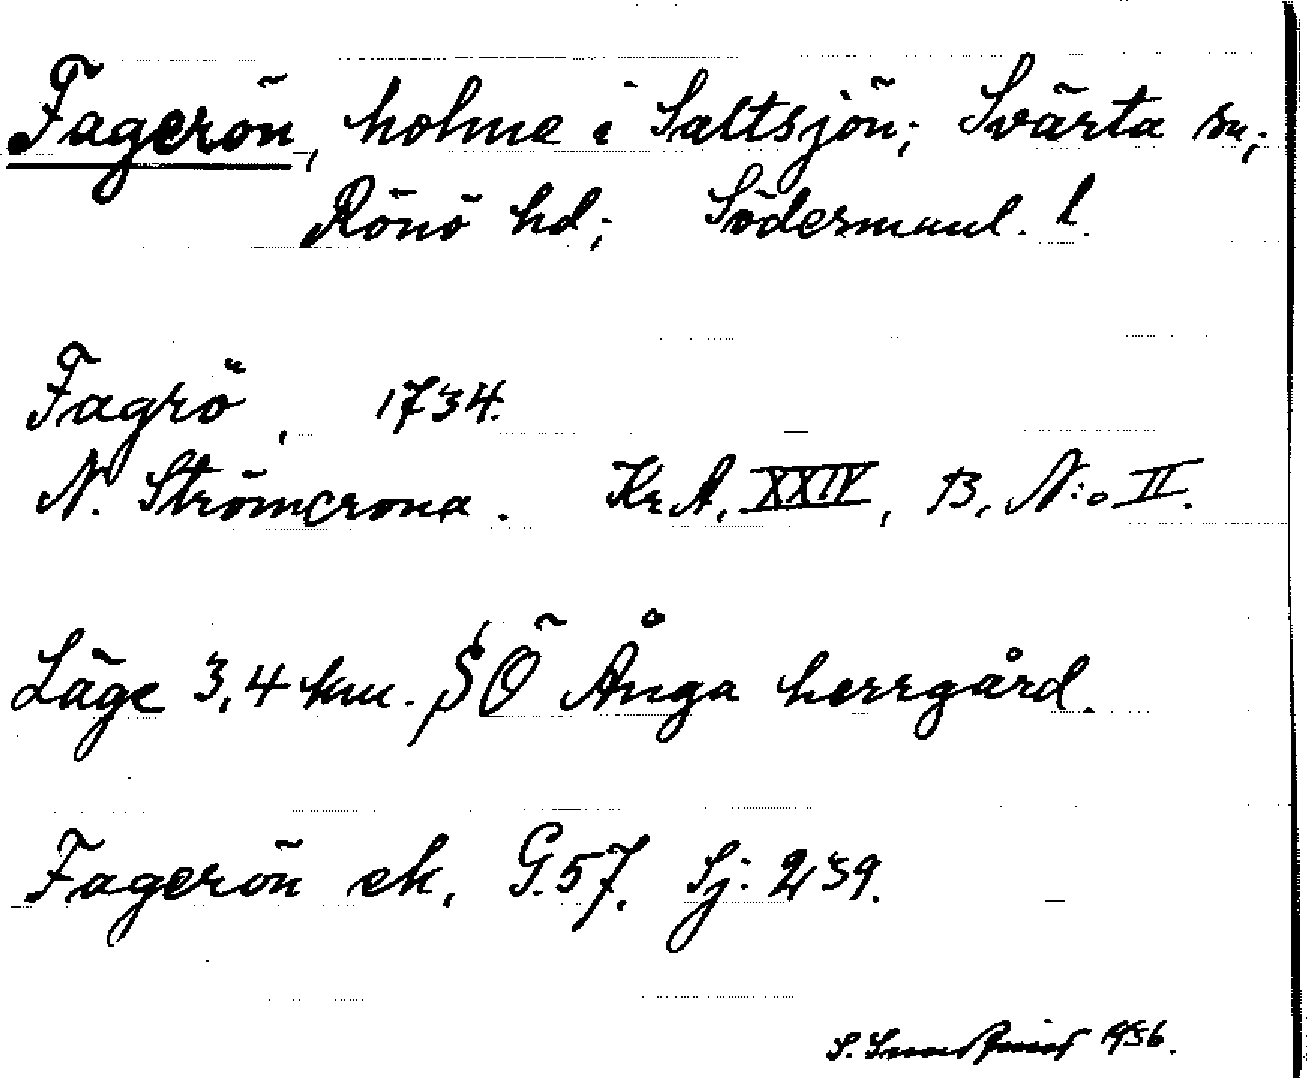 Fagerön, holme i Saltsjön; Svärta sn;
Rönö hd; Södermanl. l.
Fagrö, 1734.
N. Strömcrona. Kr. A. XXIV, B. N:o II.
Läge 3,4 km. SÖ Ånga herrgård.
Fagerön ek, G.57. Sj: 239.
S. 1936.